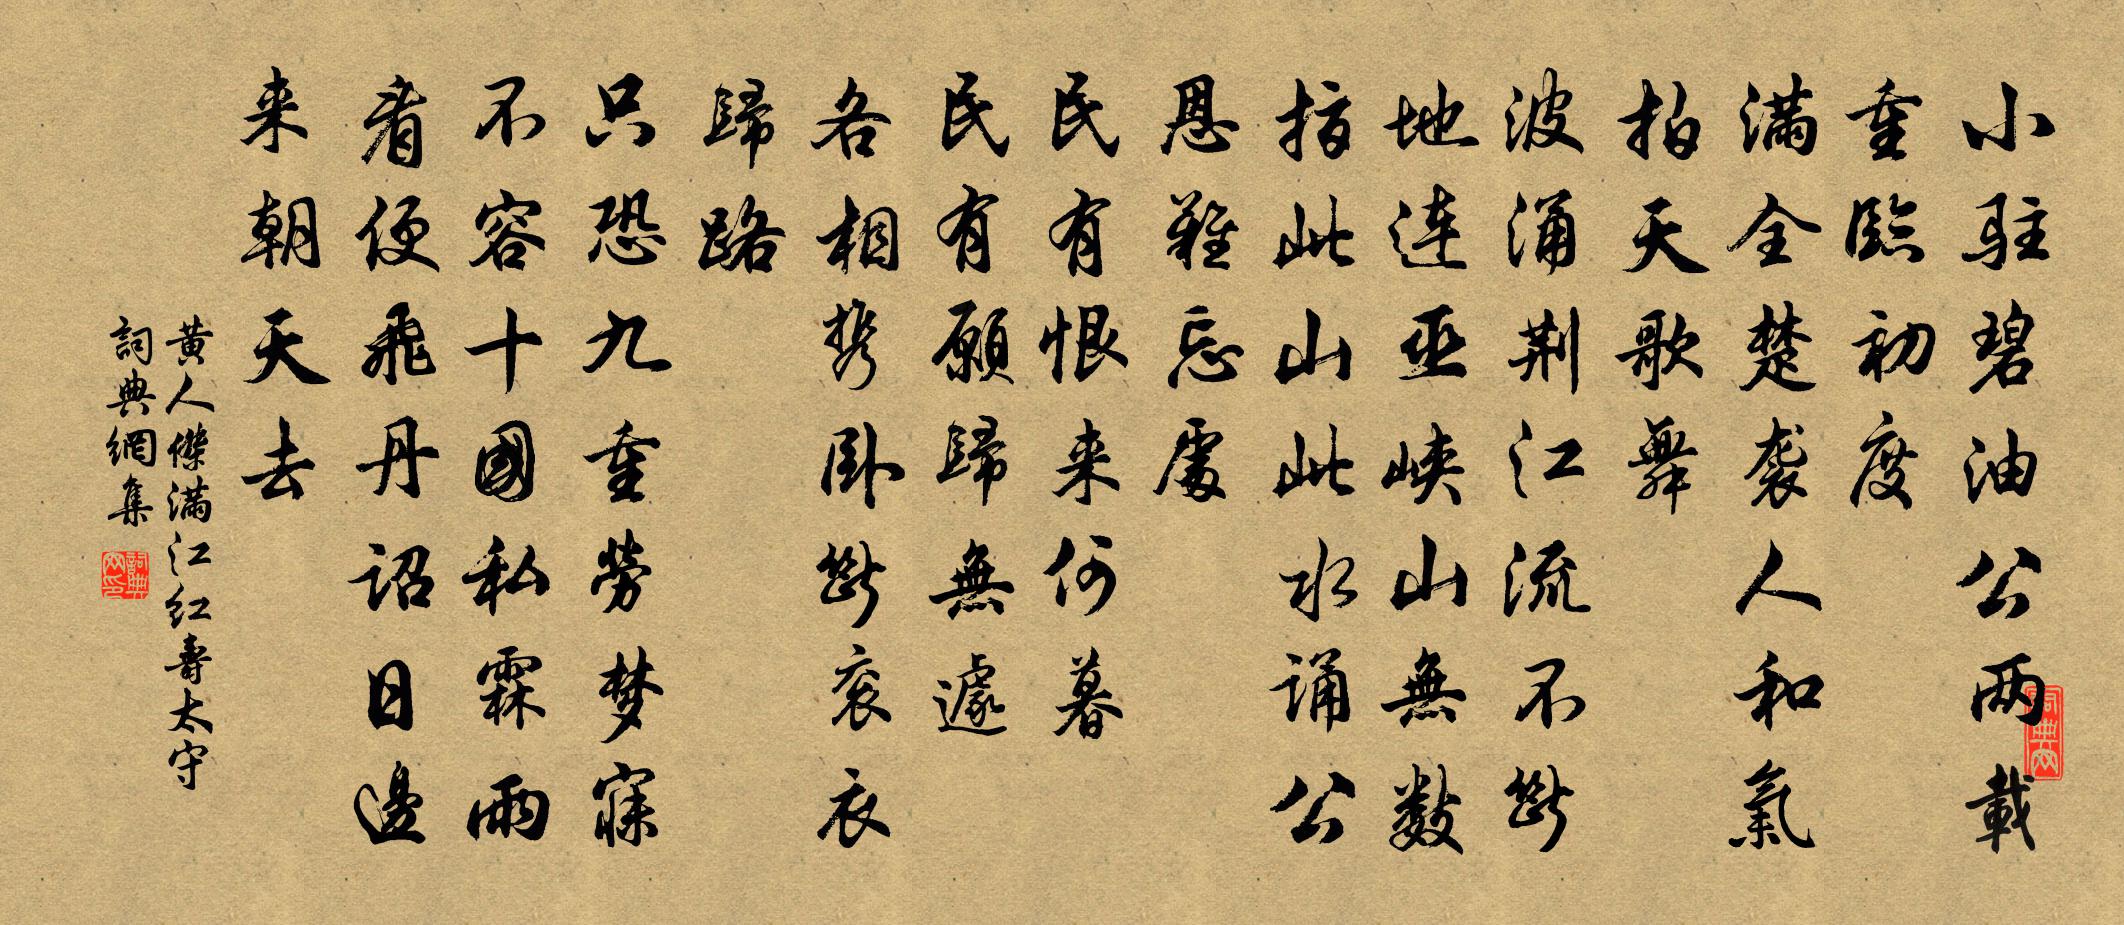 小駐碧油公两載
重臨初度
满全楚袭人和氣
拍天歌舞
波涌荆江流不斷
地連巫峡山無数
指此山此水誦公
恩難忘處
民有恨来何暮
民有願歸無遽
各相携卧斷衮衣
歸路
只恐九重勞梦寐
不容十國私霖雨
看便飛丹詔日邊
来朝天去
黄人傑满江红壽太守
詞典網集
詞典網印
詞典网